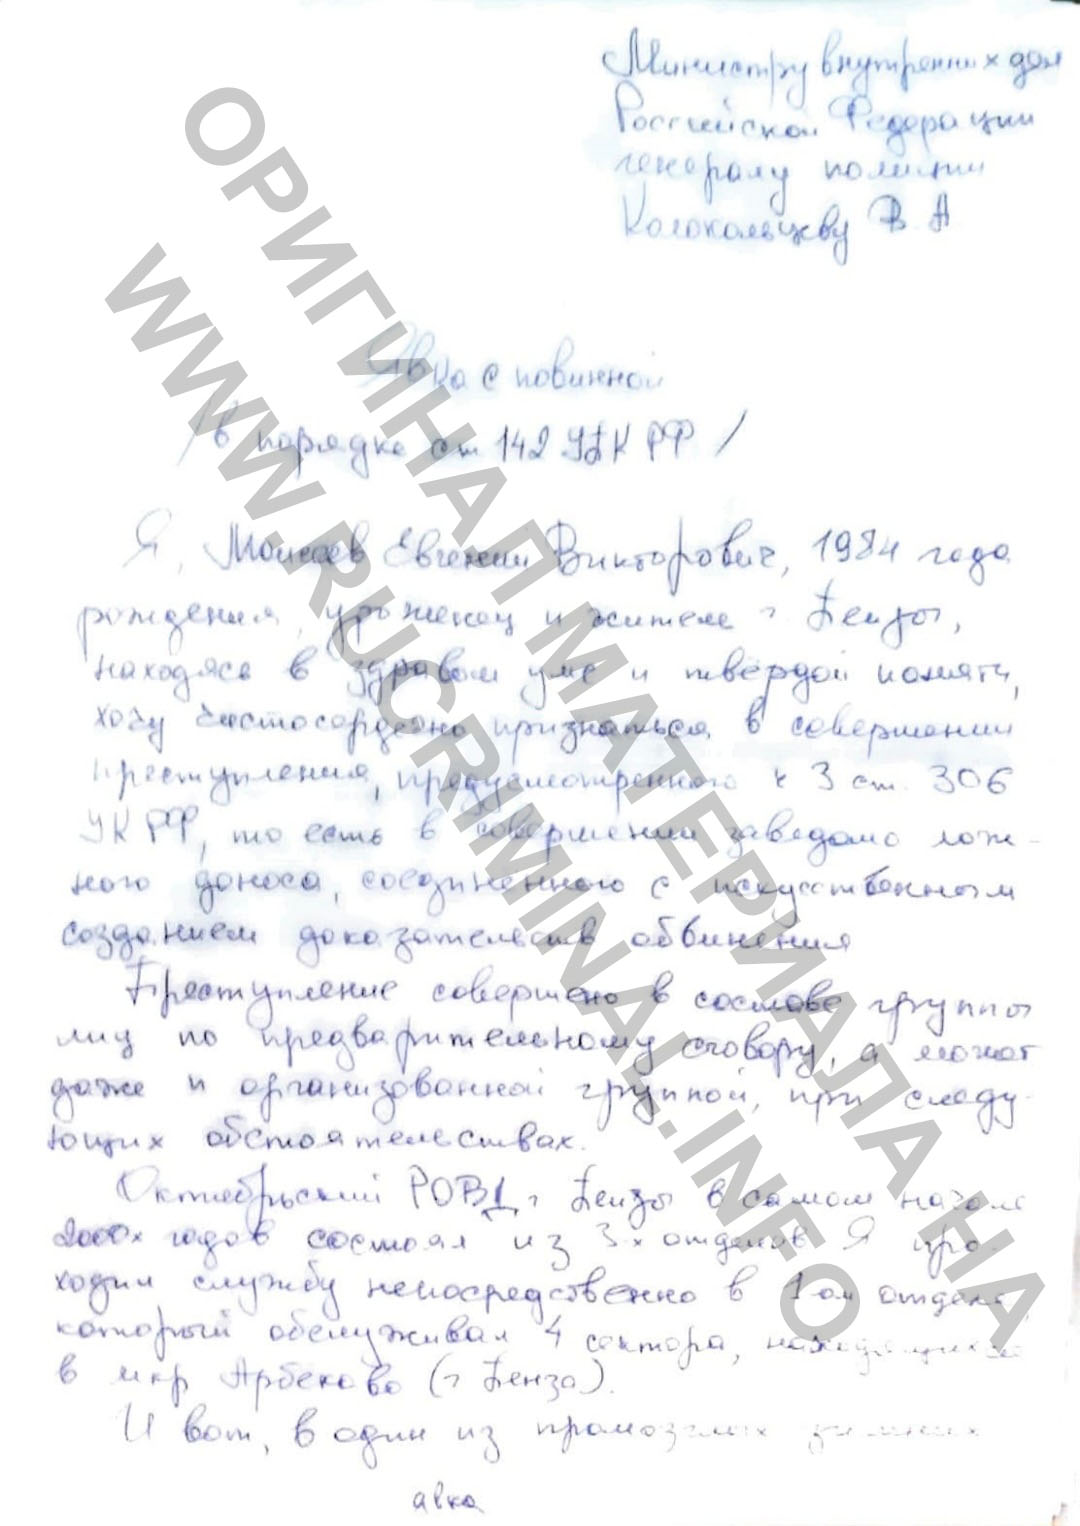 Министру внутренних дел
Российской Федерации
генералу полиции
Колокольцеву В. А
Явка с повинной
/в порядке ст 142 УПК РФ/
Я, Моисеев Евгений Викторович, 1984 года
рождения, уроженец и житель г Пензы,
находясь в здравом уме и твёрдой памяти,
хочу чистосердечно признаться в совершении
преступления, предусмотренного ч 3 ст. 306
УК РФ, то есть в совершении заведомо лож-
ного доноса, соединенного с искусственным
созданием доказательств обвинения
Преступление совершено в составе группы
лиц по предварительному сговору, а может
даже и организованной группой, при следу-
ющих обстоятельствах.
Октябрьский РОВД г Пензы в самом начале
2000х годов состоял из 3х отделов Я про-
ходил службу непосредственно в 1 ом отделе,
который обслуживал 4 сектора, находящихся
в мкр Арбеково (г Пенза).
И вот, в один из промозглых зимних
явка
ОРИГИНАЛ МАТЕРИАЛА НА
WWW.RUCRIMINAL.INFO